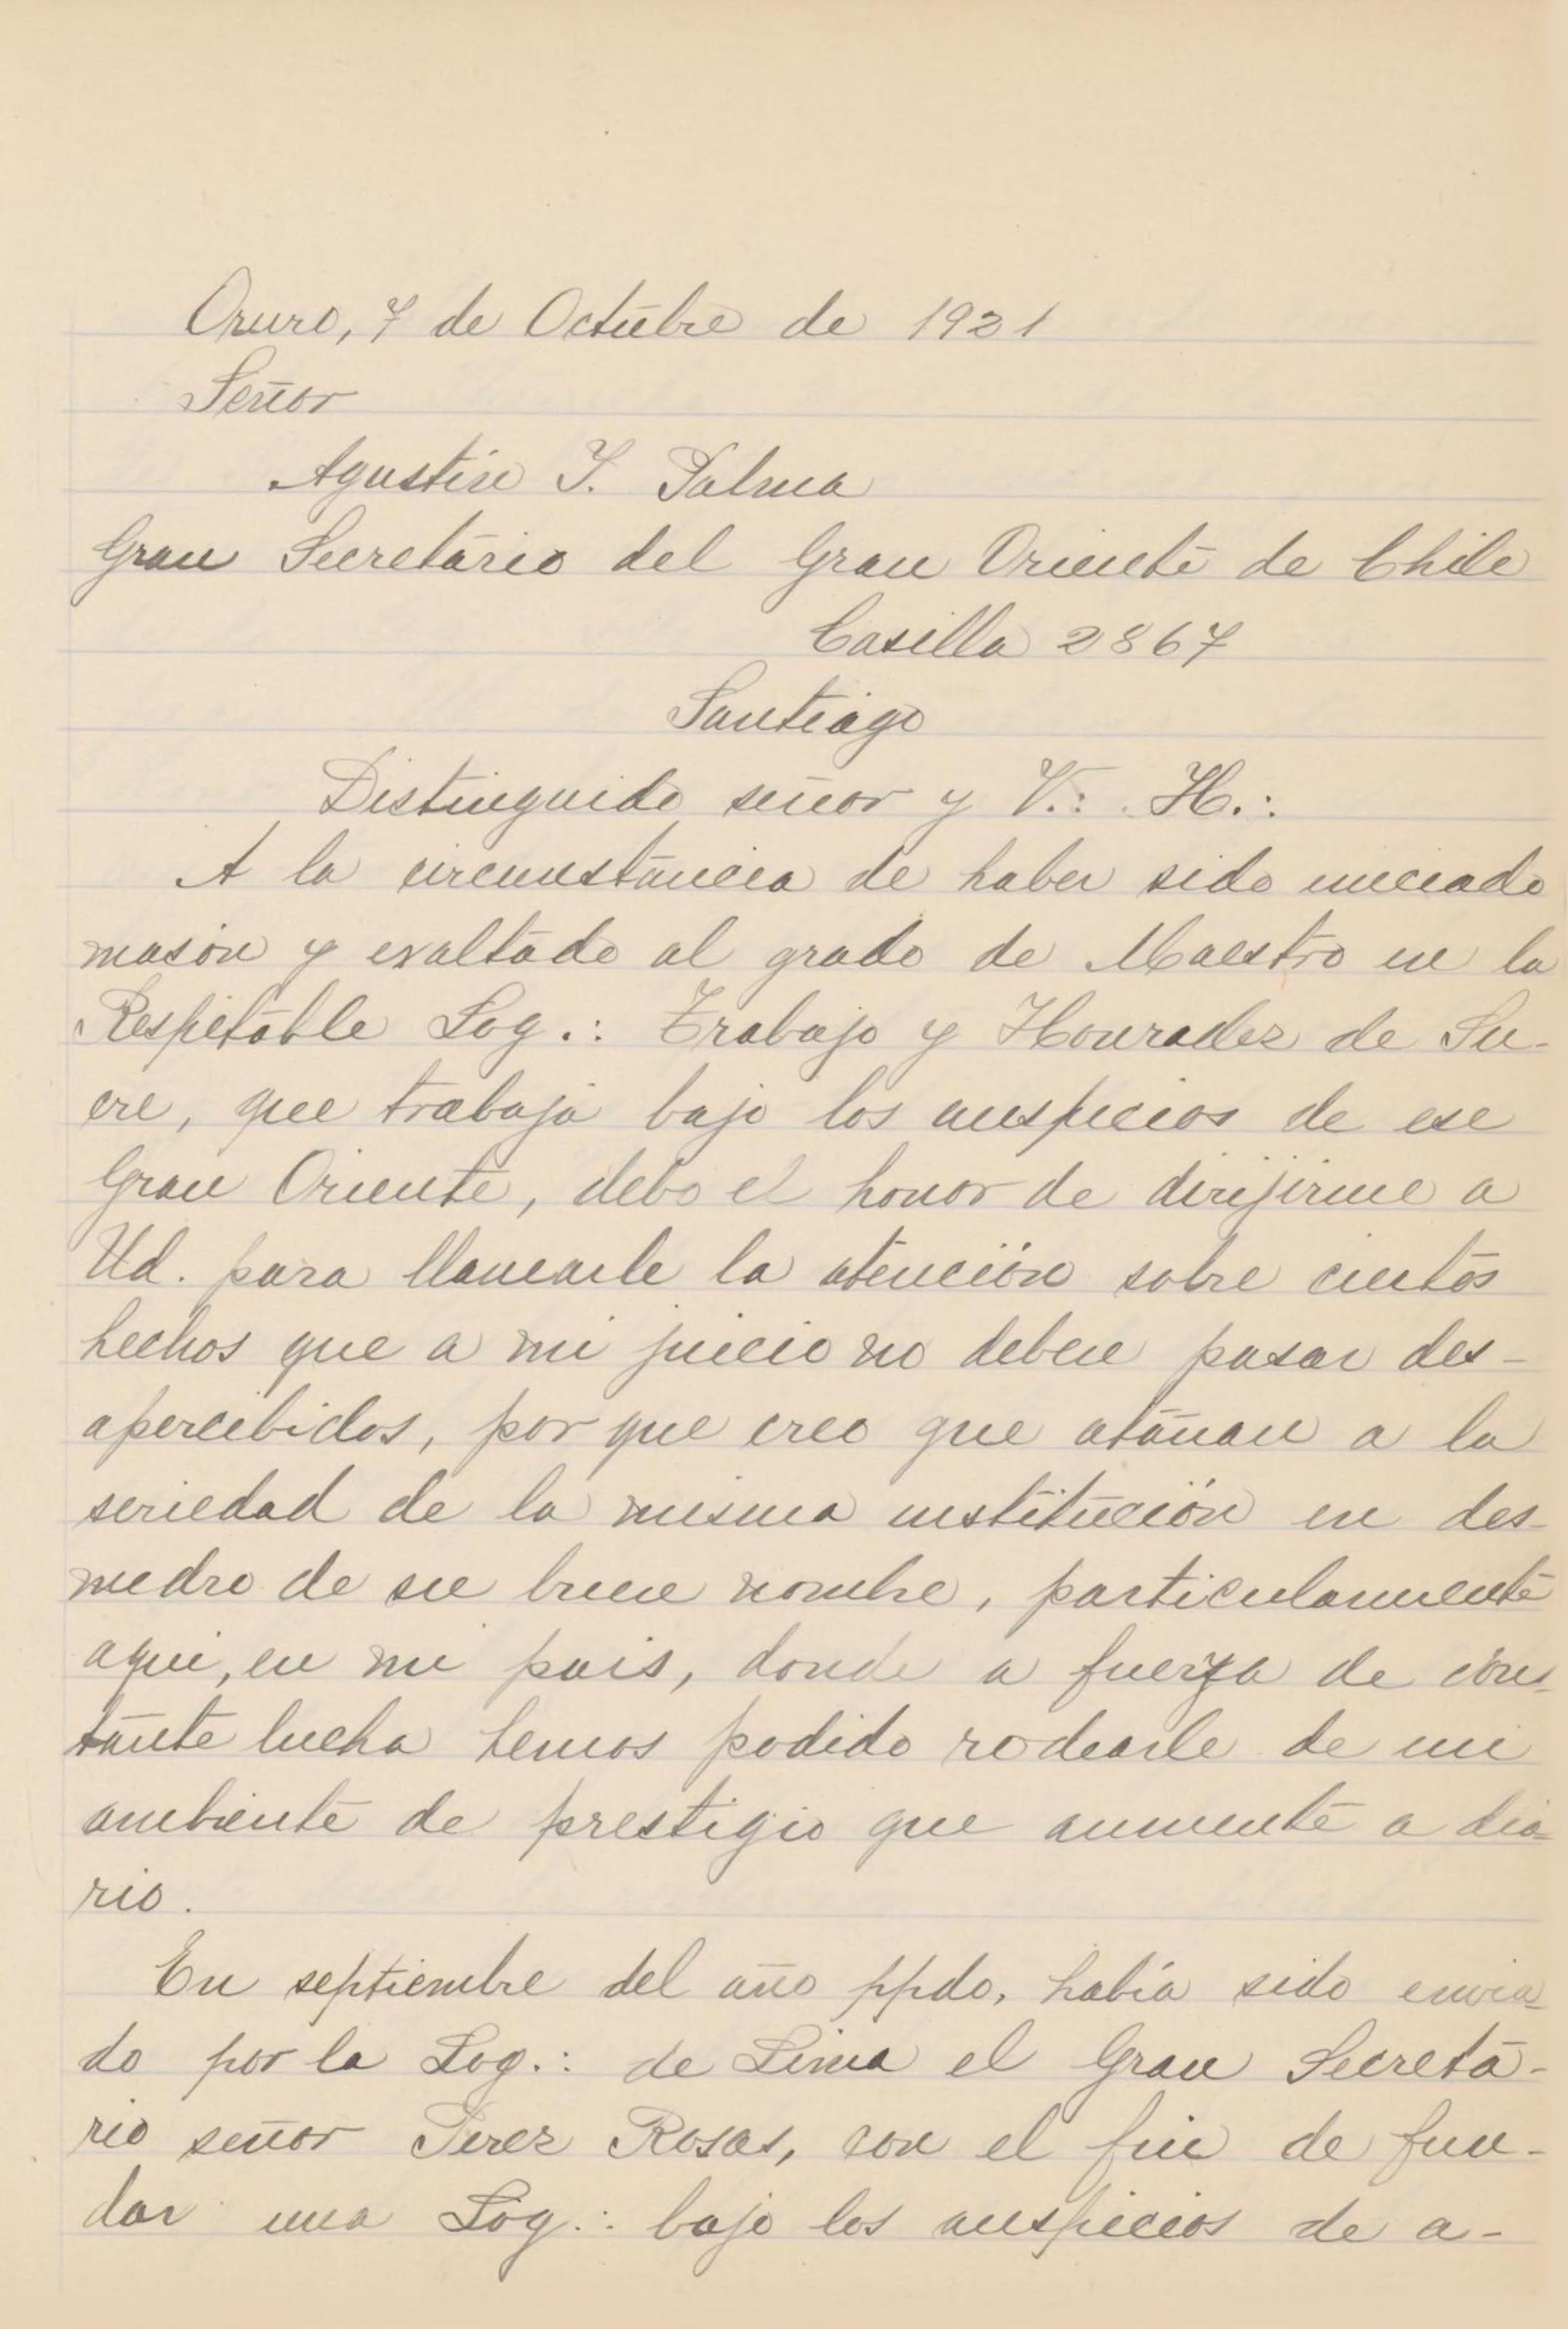 Oruro, 7 de Octubre de 1921
Señor
Agustin J. Palma
Gran Secretario del Gran Oriente de Chile
Casilla 2867
Santiago
Distinguido señor y V.: H.:
A la circunstancia de haber sido iniciado
masón y exaltado al grado de Maestro en la
Respetable Log.: Trabajo y Honradez de Su-
cre, que trabaja bajo los auspicios de ese
Gran Oriente, debo el honor de dirijirme a
Ud. para llamarle la atención sobre ciertos
hechos que a mi juicio no deben pasar des-
apercibidos, por que creo que atañan a la
seriedad de la misma institución en des-
medro de su buen nombre, particularmente
aqui, en mi pais, donde a fuerza de cons-
tante lucha hemos podido rodearle de un
ambiente de prestigio que aumenta a dia-
rio.
En septiembre del año ppdo, había sido envia-
do por la Log.: de Lima el Gran Secreta-
rio señor Perez Rosas, con el fin de fun-
dar una Log.: bajo los auspicios de a-